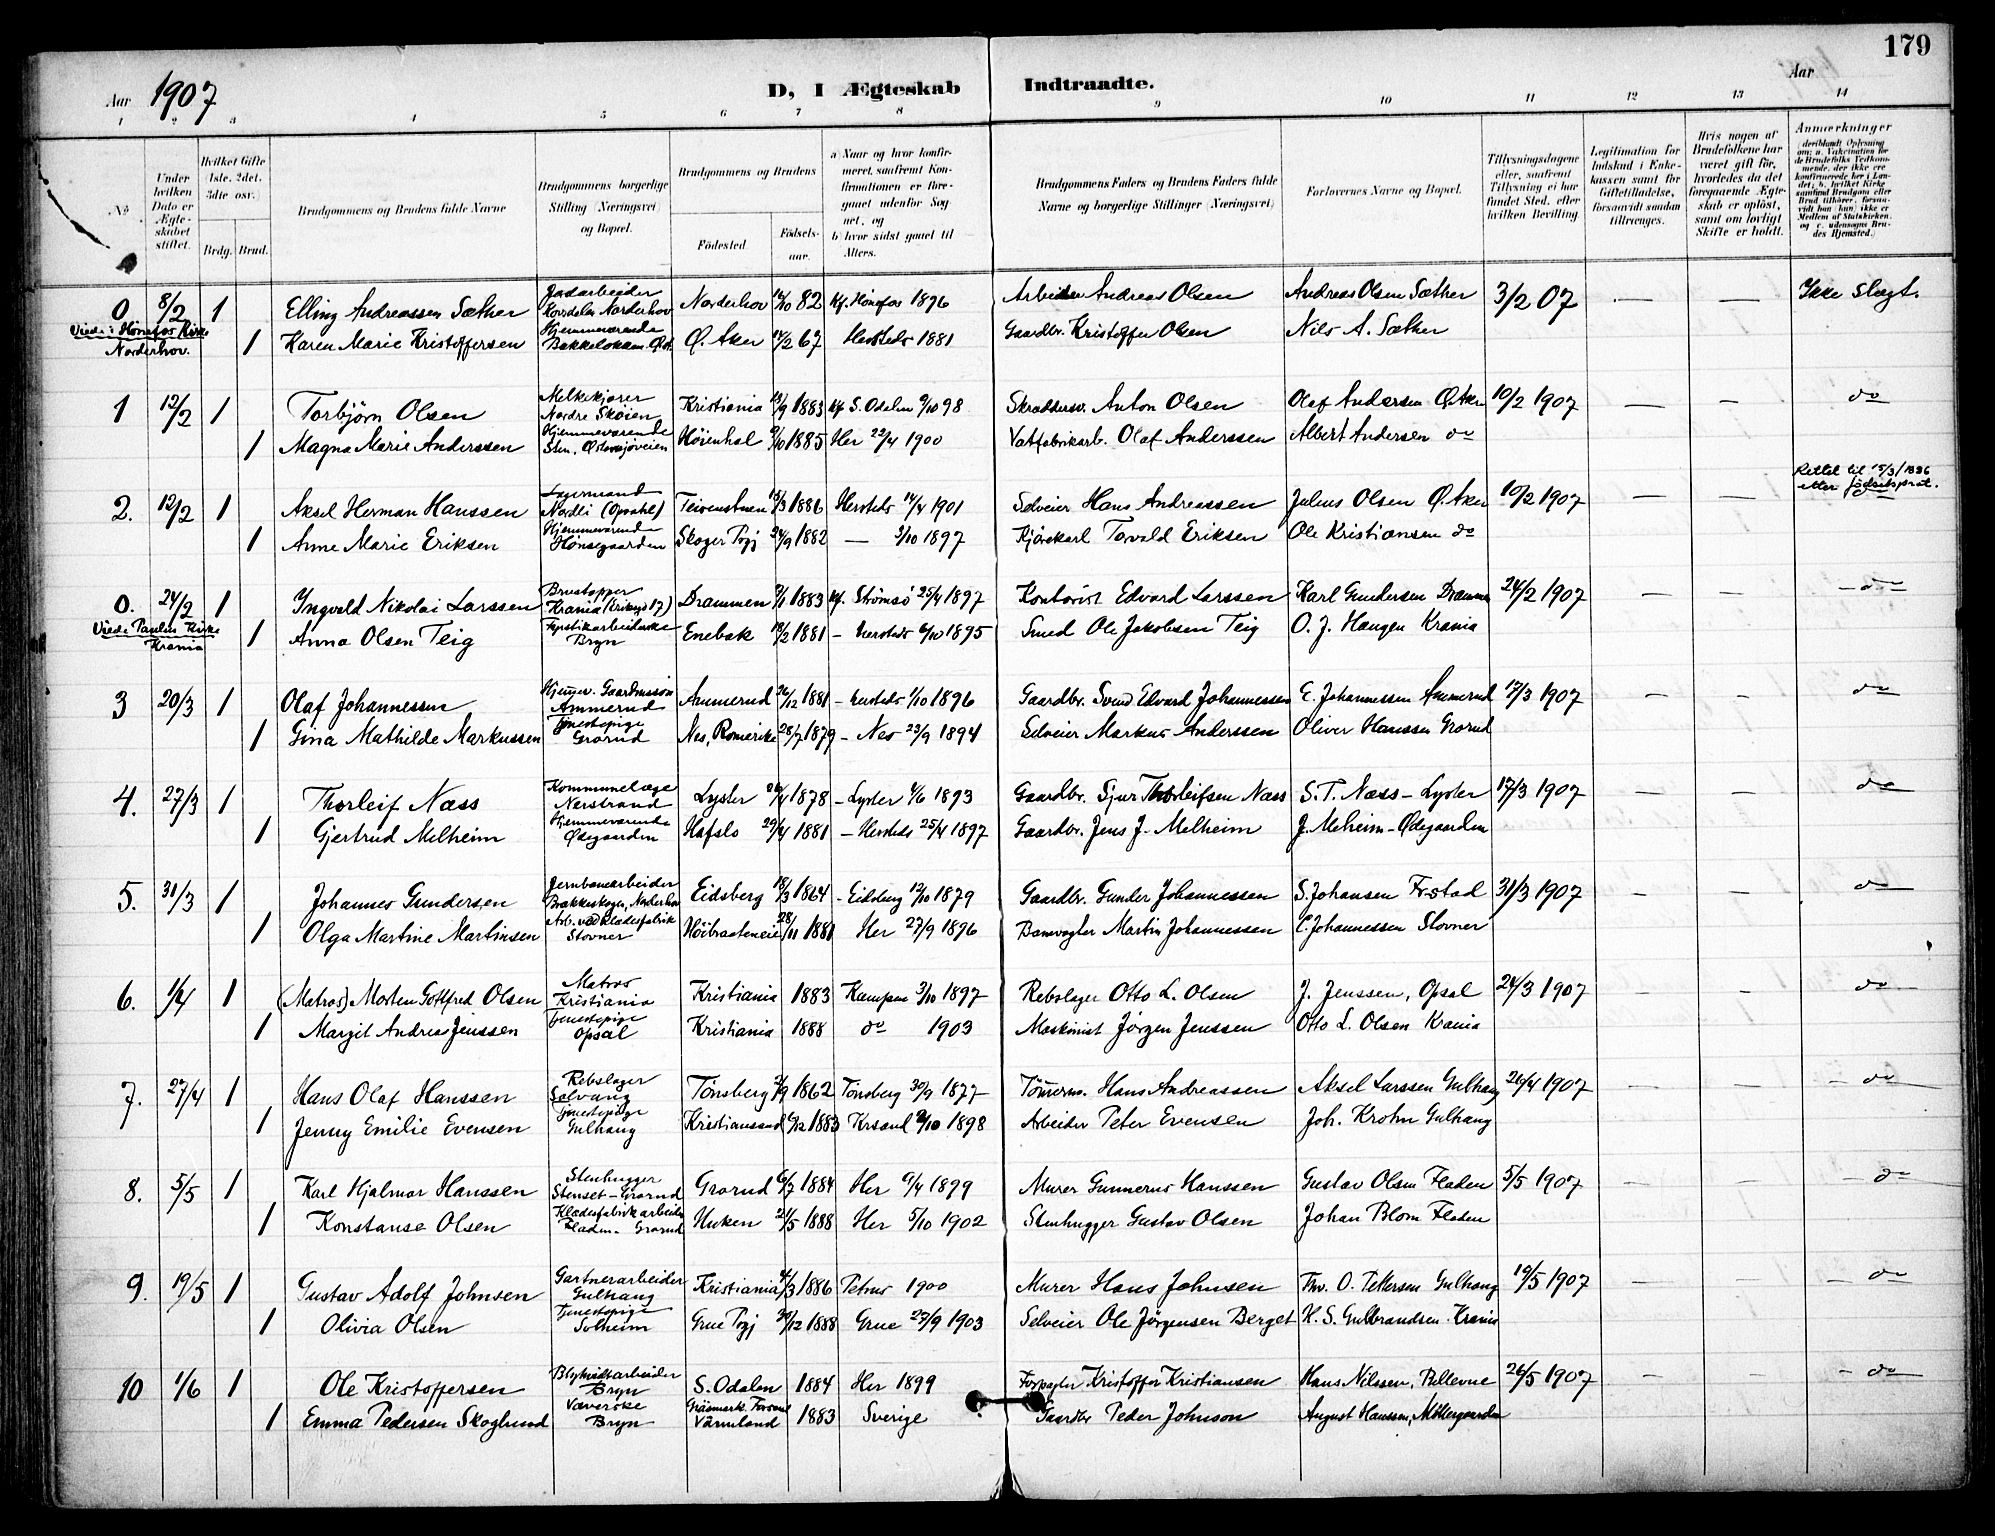 179
Aar 1907
D, I Ægteskab Indtraadte.
Aar
1 2 3 4 5 6 7 8 9 10 11 12 13 14
No.
Under hvilken Dato er Ægteskabet stiftet.
Hvilket Gifte (1ste, 2det, 3die osv.)
Brdg. Brud.
Brudgommens og Brudens fulde Navne
Brudgommens borgerlige Stilling (Næringsvei) og Bopæl.
Brudgommens og Brudens
Fødested
Fødsels-aar.
a) Naar og hvor konfirmeret, saafremt Konfirmationen er foregaaet udenfor Sognet, og
b) hvor sidst gaaet til Alters.
Brudgommens Faders og Brudens Faders fulde Navne og borgerlige Stillinger (Næringsvei)
Forlovernes Navne og Bopæl.
Tillysningsdagene eller, saafremt Tillysning ei har fundet Sted, efter hvilken Bevilling.
Legitimation for Indskud i Enkekassen samt for Giftetilladelse, forsaavidt saadan tiltrenges.
Hvis nogen af Brudefolkene har været gift før, hvorledes da det foregaaende Ægteskab er opløst, samt om lovligt Skifte er holdt.
Anmærkninger
0 8/2 1 Elling Andreassen Sæther Jordarbeider Norderhov Norderhov 82 Kf. Hønefos 1896 Arbeider Andreas Olsen Andreas Olsen Sæther 3/2 07 — — Ikke slegt.
Viede i Hønefos Kirke Norderhov.
1 Karen Marie Kristoffersen Hjemmeværende Ø. Aker 67 Hersteds 1881 Gaardbr. Kristoffer Olsen Nils A. Sæther
1 12/2 1 Torbjørn Olsen Melkekjører Nordre Skøien Kristiania 1883 Kf. S. Odalen 98 Skræddersv. Anton Olsen Olaf Andersen Ø. Aker 10/2 1907 — — do
1 Magna Marie Anderssen Hjemmeværende Sten, Østensjøveien Høienhal 1885 Her 22/4 1900 Vatfabrikarb. Olaf Anderssen Albert Andersen do
2. 12/2 1 Aksel Herman Hanssen Lagermand Nordli (Opsahl) 1886 Hersteds 14/4 1901 Selveier Hans Andreassen Julius Olsen Ø. Aker 10/2 1907 — — Rettet til 15/3/1886 efter fødselsprot.
1 Anne Marie Eriksen Hjemmeværende Hønsegaarden Skoger 1882 — 3/10 1897 Kjørekarl Torvald Eriksen Ole Kristiansen do
0. 24/2 1 Yngvald Nikolai Larssen Krania Drammen 1883 Kf. Strømsø 25/4 1897 Kontorist Edvard Larssen Karl Gundersen Drammen 24/2 1907 — do
Viede Paulus Kirke Krania
1 Anna Olsen Teig Bryn Enebak 1881 — Hersteds 1895 Smed Ole Jakobsen Teig O. J. Haugen Krania
3 20/3 1 Olaf Johannessen Hjemv. Gaardmandssøn Ammerud Ammerud 26/12 1881 — Hersteds 1/10 1896 Gaardbr. Svend Edvard Johannessen E. Johannessen Ammerud 17/3 1907 — — do
1 Gina Mathilde Markussen Tjenestepige Grorud Nes, Romerike 1879 — Nes 23/9 1894 Selveier Markus Anderssen Oliver Hanssen Grorud
4. 27/3 1 Thorleif Næss Kommunelæge Nerstrand Lyster 1878 — Lyster 1893 Gaardbr. Sjur Thorleifsen Næss S. T. Næss — Lyster 17/3 1907 — — do
1 Gjertrud Melheim Hjemmeværende Ødegaarden Hafslo 29/4 1881 — Hersteds 25/4 1897 Gaardbr. Jens J. Melheim J. Melheim — Ødegaarden
5. 31/3 1 Johannes Gundersen Jernbanearbeider Eidsberg 18/3 1864 — Eidsberg 12/10 1879 Gaardbr. Gunder Johannessen S. Johansen Frstad 31/3 1907 — — do
1 Olga Martine Martinsen Arb. ved Klædesfabrik Stovner Høibraateneie 28/11 1881 Her 27/9 1896 Banevogter Martin Johannessen E. Johannessen Stovner
6. 1/4 1 (Matros) Morten Gotfred Olsen Matros Kristiania Kristiania 1883 Kampen 3/10 1897 Rebslager Otto L. Olsen J. Jenssen, Opsal 24/3 1907 — — do
1 Margit Andrea Jenssen Tjenestepige Opsal Kristiania 1888 do 1903 Maskinist Jørgen Jenssen Otto L. Olsen Krania
7. 27/4 1 Hans Olaf Hanssen Rebslager Solvang Tønsberg 1862 Tønsberg 30/9 1877 Tømrerm. Hans Andreassen Aksel Larssen Gulhaug 26/4 1907 — — do
1 Jenny Emilie Evensen Tjenestepige Gulhaug Kristianssand 1883 Krsand 1898 Arbeider Peter Evensen Joh. Krohn Gulhaug
8. 5/5 1 Karl Hjalmar Hanssen Stenhugger Stenset — Grorud Grorud 1884 Her 9/4 1899 Murer Gunnerus Hanssen Gustav Olsen Fladen 5/5 1907 — — do
1 Konstanse Olsen Klædesfabrikarbeider Fladen — Grorud Huken 21/5 1888 Her 5/10 1902 Stenhugger Gustav Olsen Johan Blom Fladen
9. 19/5 1 Gustav Adolf Johnsen Gartnerarbeider Gulhaug Kristiania 1886 Petrus 1900 Murer Hans Johnsen Thv. O. Pettersen Gulhaug 19/5 1907 — — do
1 Olivia Olsen Tjenestepige Solheim Grue 1888 Grue 27/9 1903 Selveier Ole Jørgensen Berget H. S. Gulbrandsen Krania
10 1/6 1 Ole Kristoffersen Blyhvittarbeider Bryn S. Odalen 1884 Her 1899 Forpagter Kristoffer Kristiansen Hans Nilssen, Bellevue 26/5 1907 — — do
1 Emma Pedersen Skoglund Væverske Bryn Värmland 1883 Sverige Gaardbr Peder Johnson August Hanssen, Møllergaarden